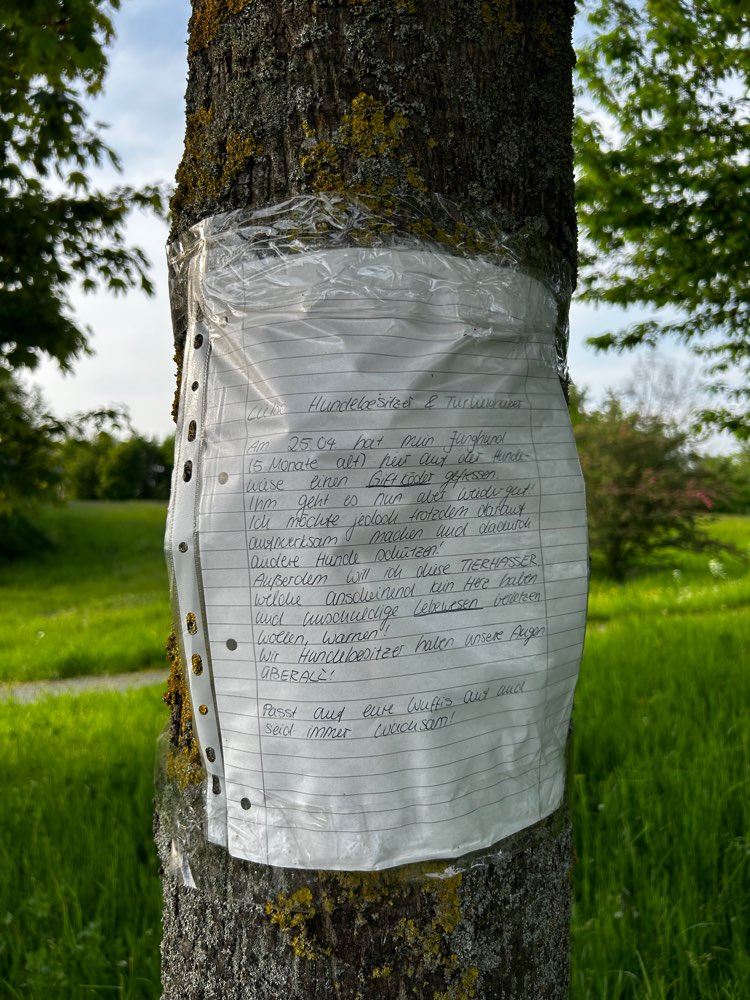 Liebe Hundebesitzer & Tierliebhaber
Am 25.04 hat mein Junghund
(5 Monate alt) hier auf der Hunde-
wiese einen Giftköder gefressen.
Ihm geht es nun aber wieder gut!
Ich möchte jedoch trotzdem darauf
aufmerksam machen und dadurch
andere Hunde schützen!
Außerdem will ich diese TIERHASSER,
welche anscheinend kein Herz haben
und unschuldige Lebewesen verletzen
wollen, warnen!!
Wir Hundebesitzer haben unsere Augen
ÜBERALL!
Passt auf eure Wuffis auf und
seid immer wachsam!